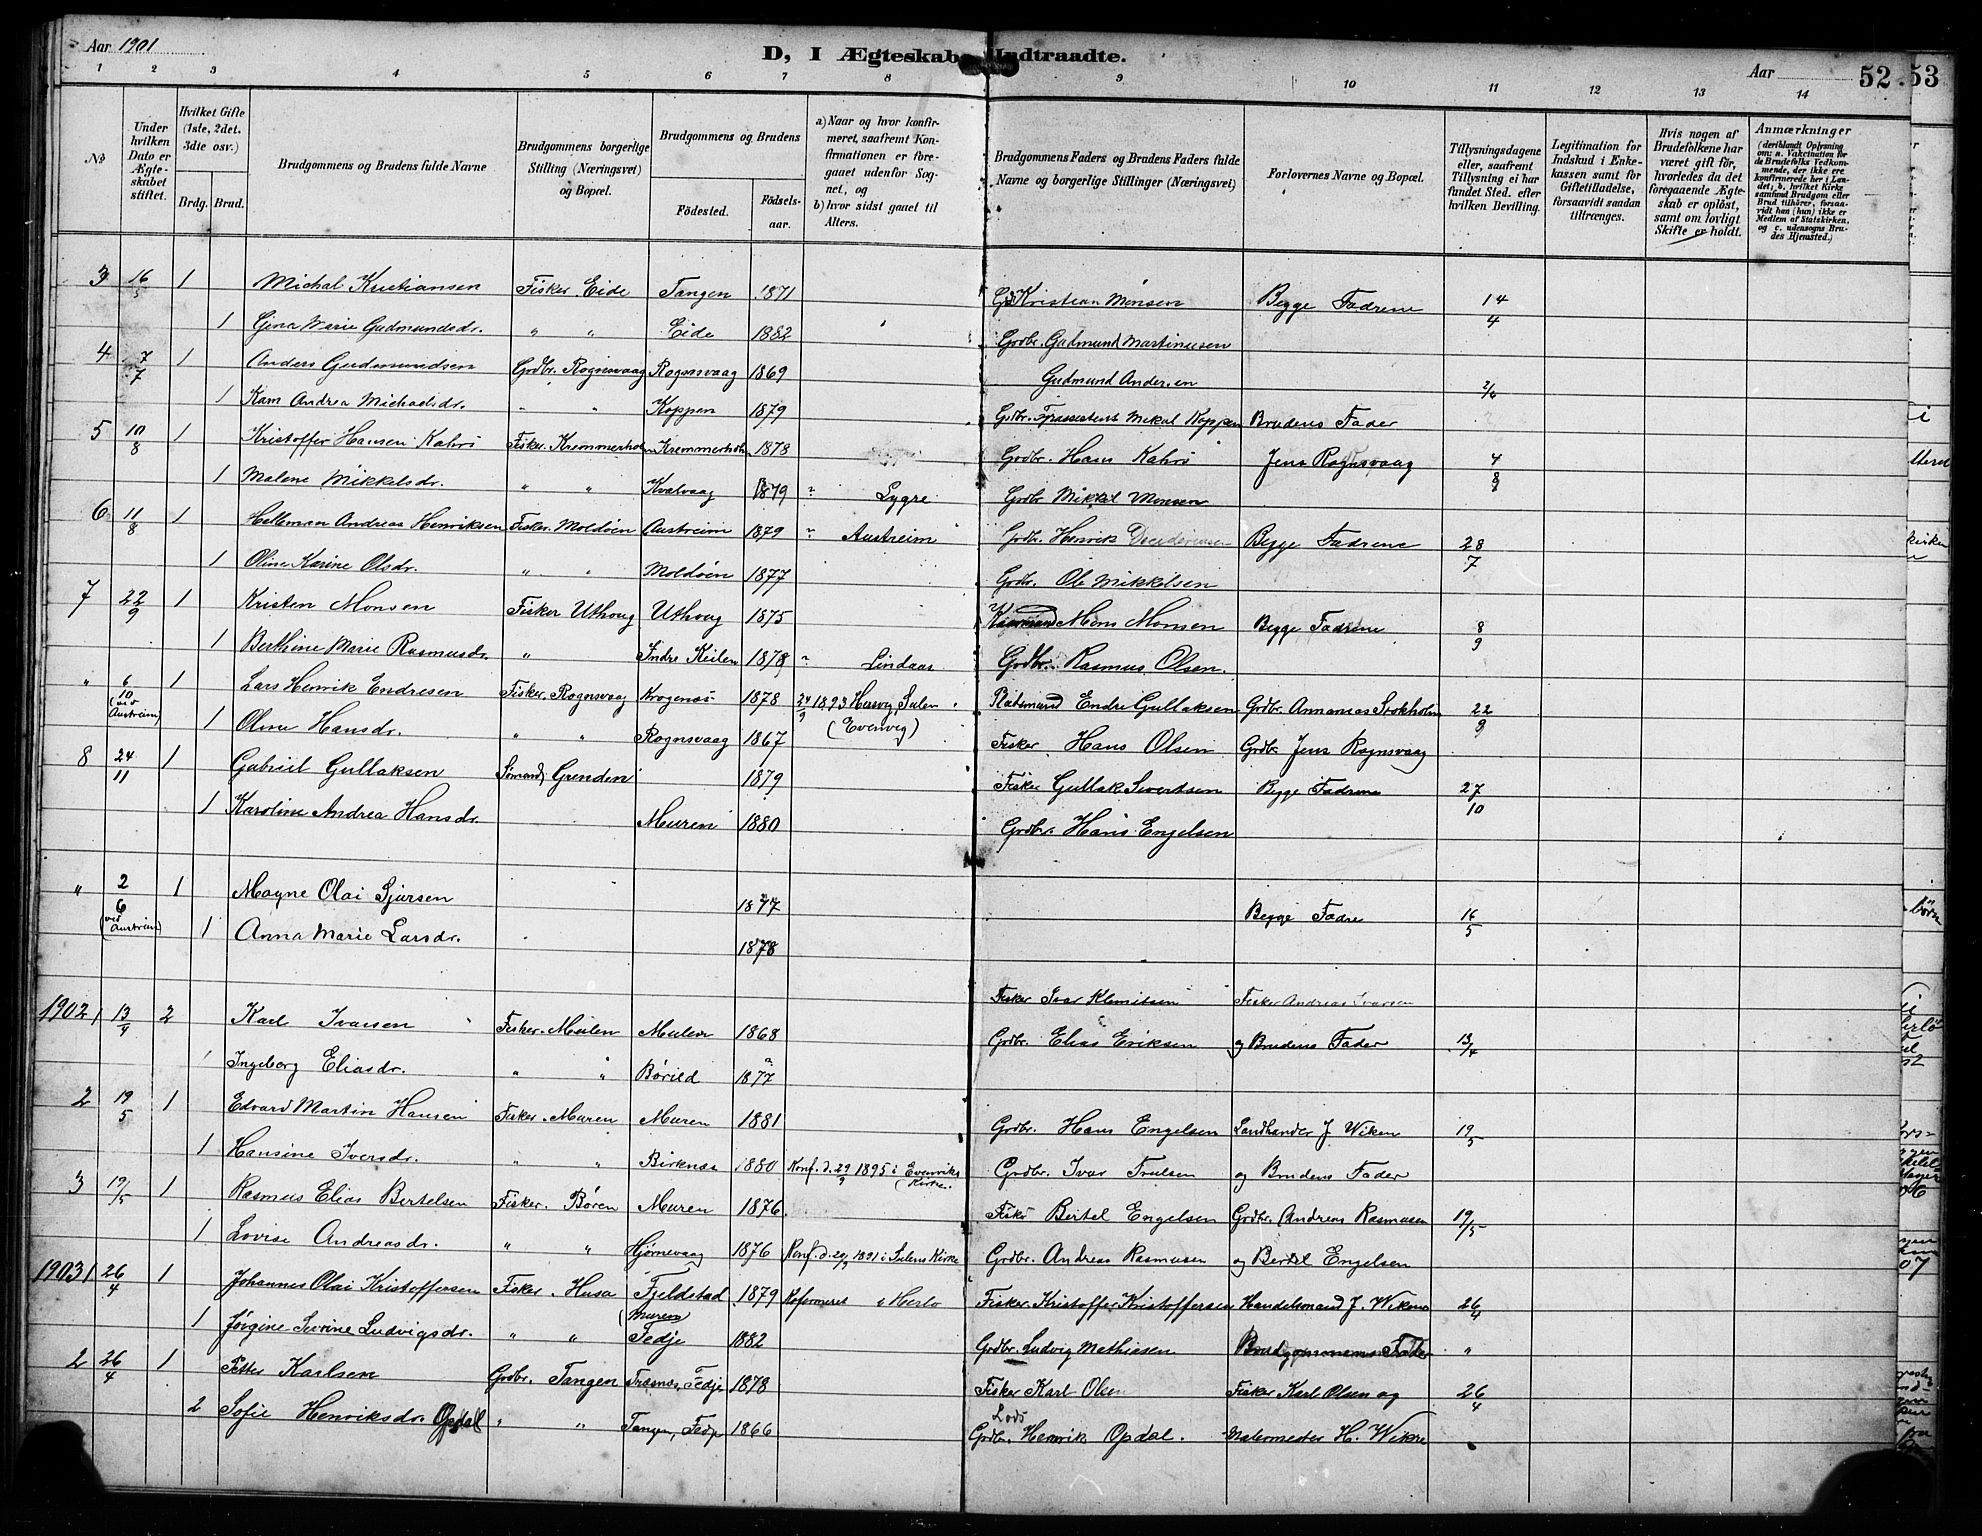 Aar 1901
D, I Ægteskab Indtraadte.
Aar
52
53
1 2 3 4 5 6 7 8 9 10 11 12 13 14
No
Under hvilken Dato er Ægteskabet stiftet.
Hvilket Gifte (1ste, 2det. 3die osv.)
Brdg. Brud.
Brudgommens og Brudens fulde Navne
Brudgommens borgerlige Stilling (Næringsvei) og Bopæl.
Brudgommens og Brudens
Födested.
Födselsaar.
a) Naar og hvor konfirmeret, saafremt Konfirmationen er foregaaet udenfor Sognet, og
b) hvor sidst gaaet til Alters.
Brudgommens Faders og Brudens Faders fulde Navne og borgerlige Stillinger (Næringsvei)
Forlovernes Navne og Bopæl.
Tillysningsdagene eller, saafremt Tillysning ei har fundet Sted. efter hvilken Bevilling.
Legitimation for Indskud i Enkekassen samt for Giftetilladelse, forsaavidt saadan tiltrænges.
Hvis nogen af Brudefolkene har været gift før, hvorledes da det foregaaende Ægteskab er opløst, samt om lovligt Skifte er holdt.
Anmærkninger
(deriblandt Oplysning om: a. Vakcination for de Brudefolks Vedkommende, der ikke ere konfirmerede her i Landet; b. hvilket Kirkesamfund Brudgom eller Brud tilhører, forsaavidt han (hun) ikke er Medlem af Statskirken, og c. udensogns Brudes Hjemsted.)
3 16/5 1 Michal Kristiansen Fisker Eide Tangen 1871 Kristian Monsen Begge Fædrene 14/4
1 Gina Marie Gudmundsdr. " " Eide 1882 Grdbr. Gudmund Martinusen
4 7/7 1 Anders Gudmundsen Grdbr. Rognsvaag Rognsvaag 1869 Gudmund Andersen 2/6
1 Andrea Michaelsdr. " " Koppen 1879 Grdbr. Mekal Koppen Brudens Fader
5 10/8 1 Kristoffer Hansen Kahrs Fisker Kremmerholm Kremmerholm 1878 Grdbr. Hans Kahrs Jens Rognsvaag 4/8
1 Malene Mikkelsdr. " " Kvalvaag 1879 " Lygre Grdbr Mikkel Monsen
6 11/8 1 Helleman Andreas Henriksen Fisker. Moldöen Austreim 1879 " Austreim Grdbr. Henrik Begge Fædrene 28/7
1 Oline Karine Olsdr. " " Moldöen 1877 Grdbr. Ole Mikkelsen
7 22/9 1 Kristen Monsen Fisker Uthoug Uthoug 1875 Mons Monsen Begge Fædrene 8/9
1 Berthine Marie Rasmusdr. " Indre Keilen 1878 " Lindaas Grdbr. Rasmus Olsen.
" 6/10 (ved Austreim) 1 Lars Henrik Endresen Fisker. Rognsvaag Krogenæs 1878 24/9 1893 Sulen (Evenvig) Endre Gullaksen Grdbr. Annanias Stokholm 22/9
1 Oline Hansdr. " " Rognsvaag 1867 Fisker Hans Olsen Grdbr. Jens Rognsvaag
8 24/11 1 Gabriel Gullaksen Sömand, Grenden 1879 Fisker Gullak Sivertsen Begge Fædrene 27/10
1 Karoline Andrea Hansdr. Muren 1880 Grdbr. Hans Engelsen
" 2/6 (ved Austreim) 1 Magne Olai Sjursen 1877 Begge Fædre 16/5
1 Anna Marie Larsdr. 1878
Fisker Ivar Klemitsen Fisker Andreas Ivarsen
1902 1 13/4 2 Karl Ivarsen Fisker. Mulen Mulen 1868 Grdbr. Elias Eriksen og Brudens Fader 13/4
1 Ingeborg Eliasdr. " " Börild 1877
2 19/5 1 Edvard Martin Hansen Fisker. Muren Muren 1881 Grdbr. Hans Engelsen Landhander J. Wiken 19/5
1 Hansine Iversdr. " " Birknes 1880 Konf. d. 29/9 1895 i Evenviks Kirke. Grdbr. Ivar Trulsen og Brudens Fader
3 19/5 1 Rasmus Elias Bertelsen Fisker. Bören Muren 1876 Fisker Bertel Engelsen Grdbr. Andreas Rasmusen 19/5
1 Lovise Andreasdr. " " Hjörnevaag 1876 Konf. d. 20/9 1891 i Sulens Kirke Grdbr. Andreas Rasmusen og Bertel Engelsen
1903 1 26/4 1 Johannes Olai Kristoffersen Fisker. Husa Fjeldstad 1879 Koformeret i Herlö Fisker Kristoffer Kristoffersen Handelsmand J. Wiken 26/4
1 Jörgine Sivrine Ludvigsdr. " " (Muren Fedje 1882 Grdbr. Ludvig Mathiesen Brudgommens Fader "
2 26/4 1 Petter Karlsen Grdbr. Tangen Træsnæs, Fedje 1878 Fisker Karl Olsen Fisker Karl Olsen og 26/4
2 Sofie Henriksdr. Opdal " " Tangen, Fedje 1866 Lods Grdbr. Henrik Opdal. Malermester H. Wikre